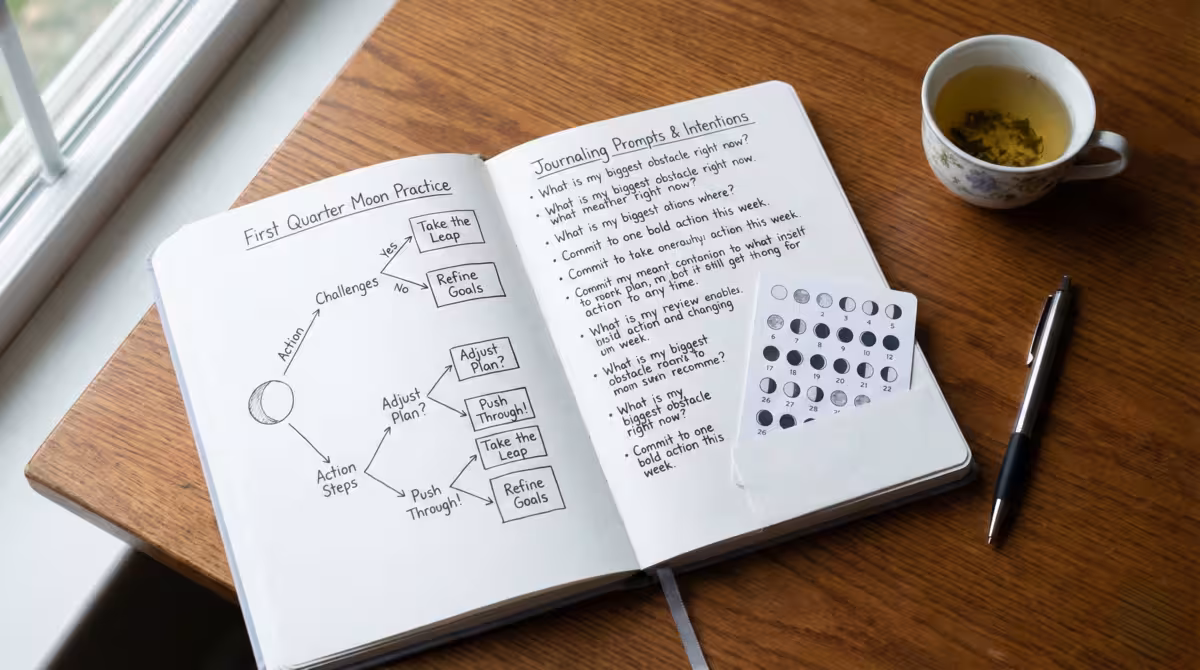 First Quarter Moon Practice
Action
Challenges
Yes
Take the
Leap
No
Refine
Goals
Action
Steps
Adjust
Plan?
Adjust
Plan?
Push
Through!
Push
Through!
Take the
Leap
Refine
Goals
Journaling Prompts & Intentions
• What is my biggest obstacle right now?
• What is my biggest obstacle right now.
what meather right now?
• What is my biggest ations where?
• Commit to one bold action this week.
• Commit to take action this week.
• Commit my meant contanion to what inself
to mork plan, m, bot it still get thong for
action to any time.
• What is my review enables.
bisld action and changing
um week.
• What is my biggest
obstacle roan's to
mom swn recomme?
• What is my
biggest obstacle
right now?
• Commit to one
bold action this
week.
2 3 4 5
6 7 8 9 10 12
17 18 19 20 21 22
26 27 28
26